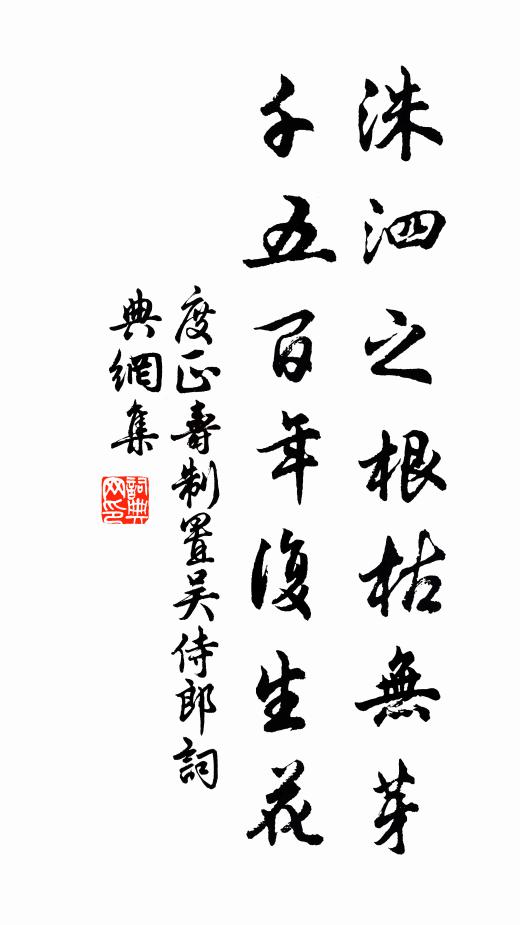 洙泗之根枯無芽
千五百年復生花
度正壽制置吴侍郎詞
典網集
詞典网印